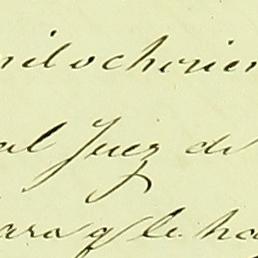 mil ochocien
al Juez de
para q. le ha